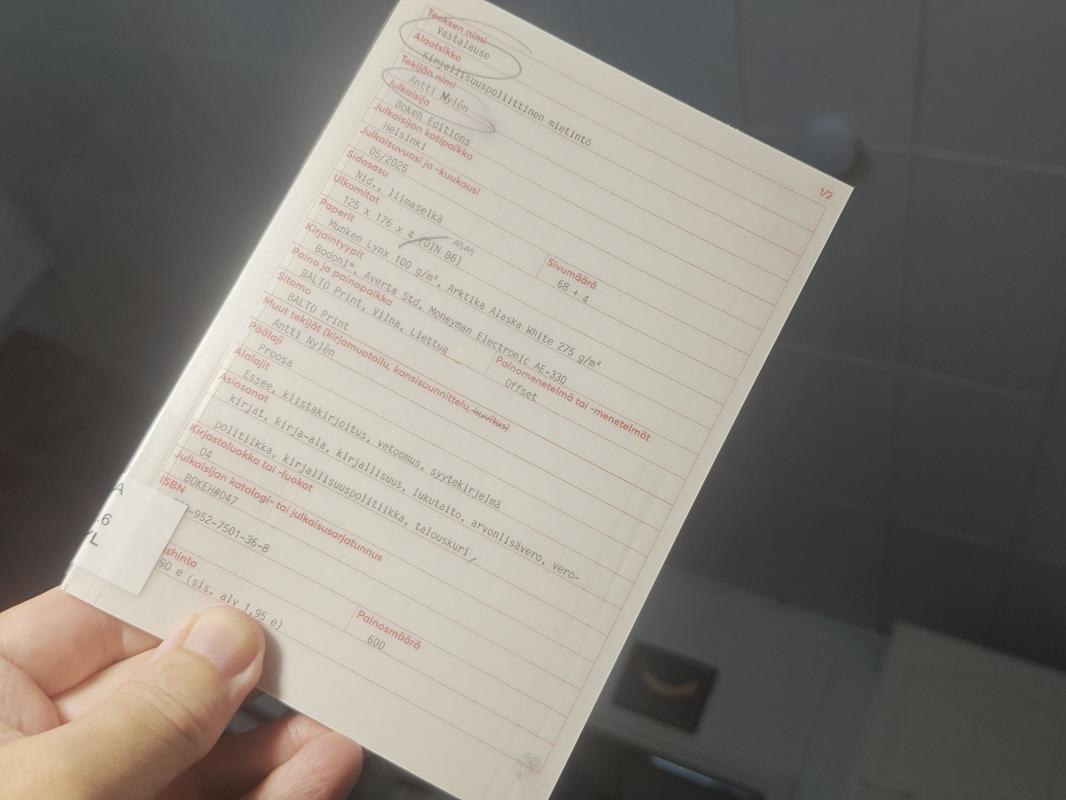 1/2
Teoksen nimi
Vastalause
Alaotsikko
Kirjallisuuspoliittinen mietintö
Tekijän nimi
Antti Nylén
Julkaisija
Bokeh Editions
Julkaisijan kotipaikka
Helsinki
Julkaisuvuosi ja -kuukausi
05/2025
Sidosasu
Nid., liimaselkä
Ulkomitat
125 x 176 x 4 (DIN B6)
mm
Sivumäärä
68 + 4
Paperit
Munken Lynx 100 g/m², Arktika Alaska White 275 g/m²
Kirjaintyypit
Bodoni*, Averta Std, Moneyman Electronic AE-330
Paino ja painopaikka
BALTO Print, Vilna, Liettua
Painomenetelmä tai -menetelmät
Offset
Sitomo
BALTO Print
Muut tekijät (kirjamuotoilu, kansisuunnittelu, kuvitus)
Antti Nylén
Päälaji
Proosa
Alalajit
Essee, kiistakirjoitus, vetoomus, syytekirjelmä
Asiasanat
kirjat, kirja-ala, kirjallisuus, lukutaito, arvonlisävero, vero-
politiikka, kirjallisuuspolitiikka, talouskuri
Kirjastoluokka tai -luokat
04
Julkaisijan katalogi- tai julkaisusarjatunnus
BOKEH#047
ISBN
-952-7501-36-8
shinta
90 e (sis. alv 1,95 e)
Painosmäärä
600
A
.6
YL